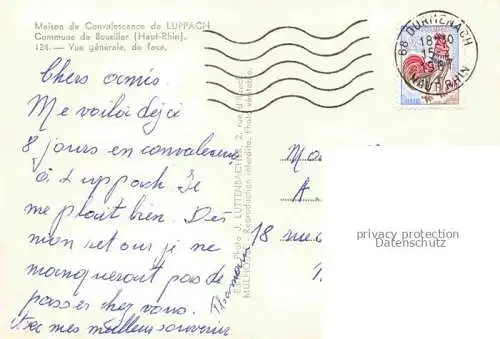 Maison de Convalescence de LUPPACH
Commune de Bouxiller (Haut-Rhin).
124. — Vue générale, de face.
68 DURMENACH
18H30
15
19
HAUT-RHIN
Chers amis.
Me voilà déjà
8 jours en convalescence
à Luppach Je
me plait bien. Dès
mon retour je ne
manquerait pas de
passer chez vous.
avec mes meilleurs souvenirs
Photo J. LUTTENBACHER, 2, rue
MULHOUSE Reproduction interdite. Photo véritable.
Mo
A
18 rue
Privatsphäre
Datenschutz